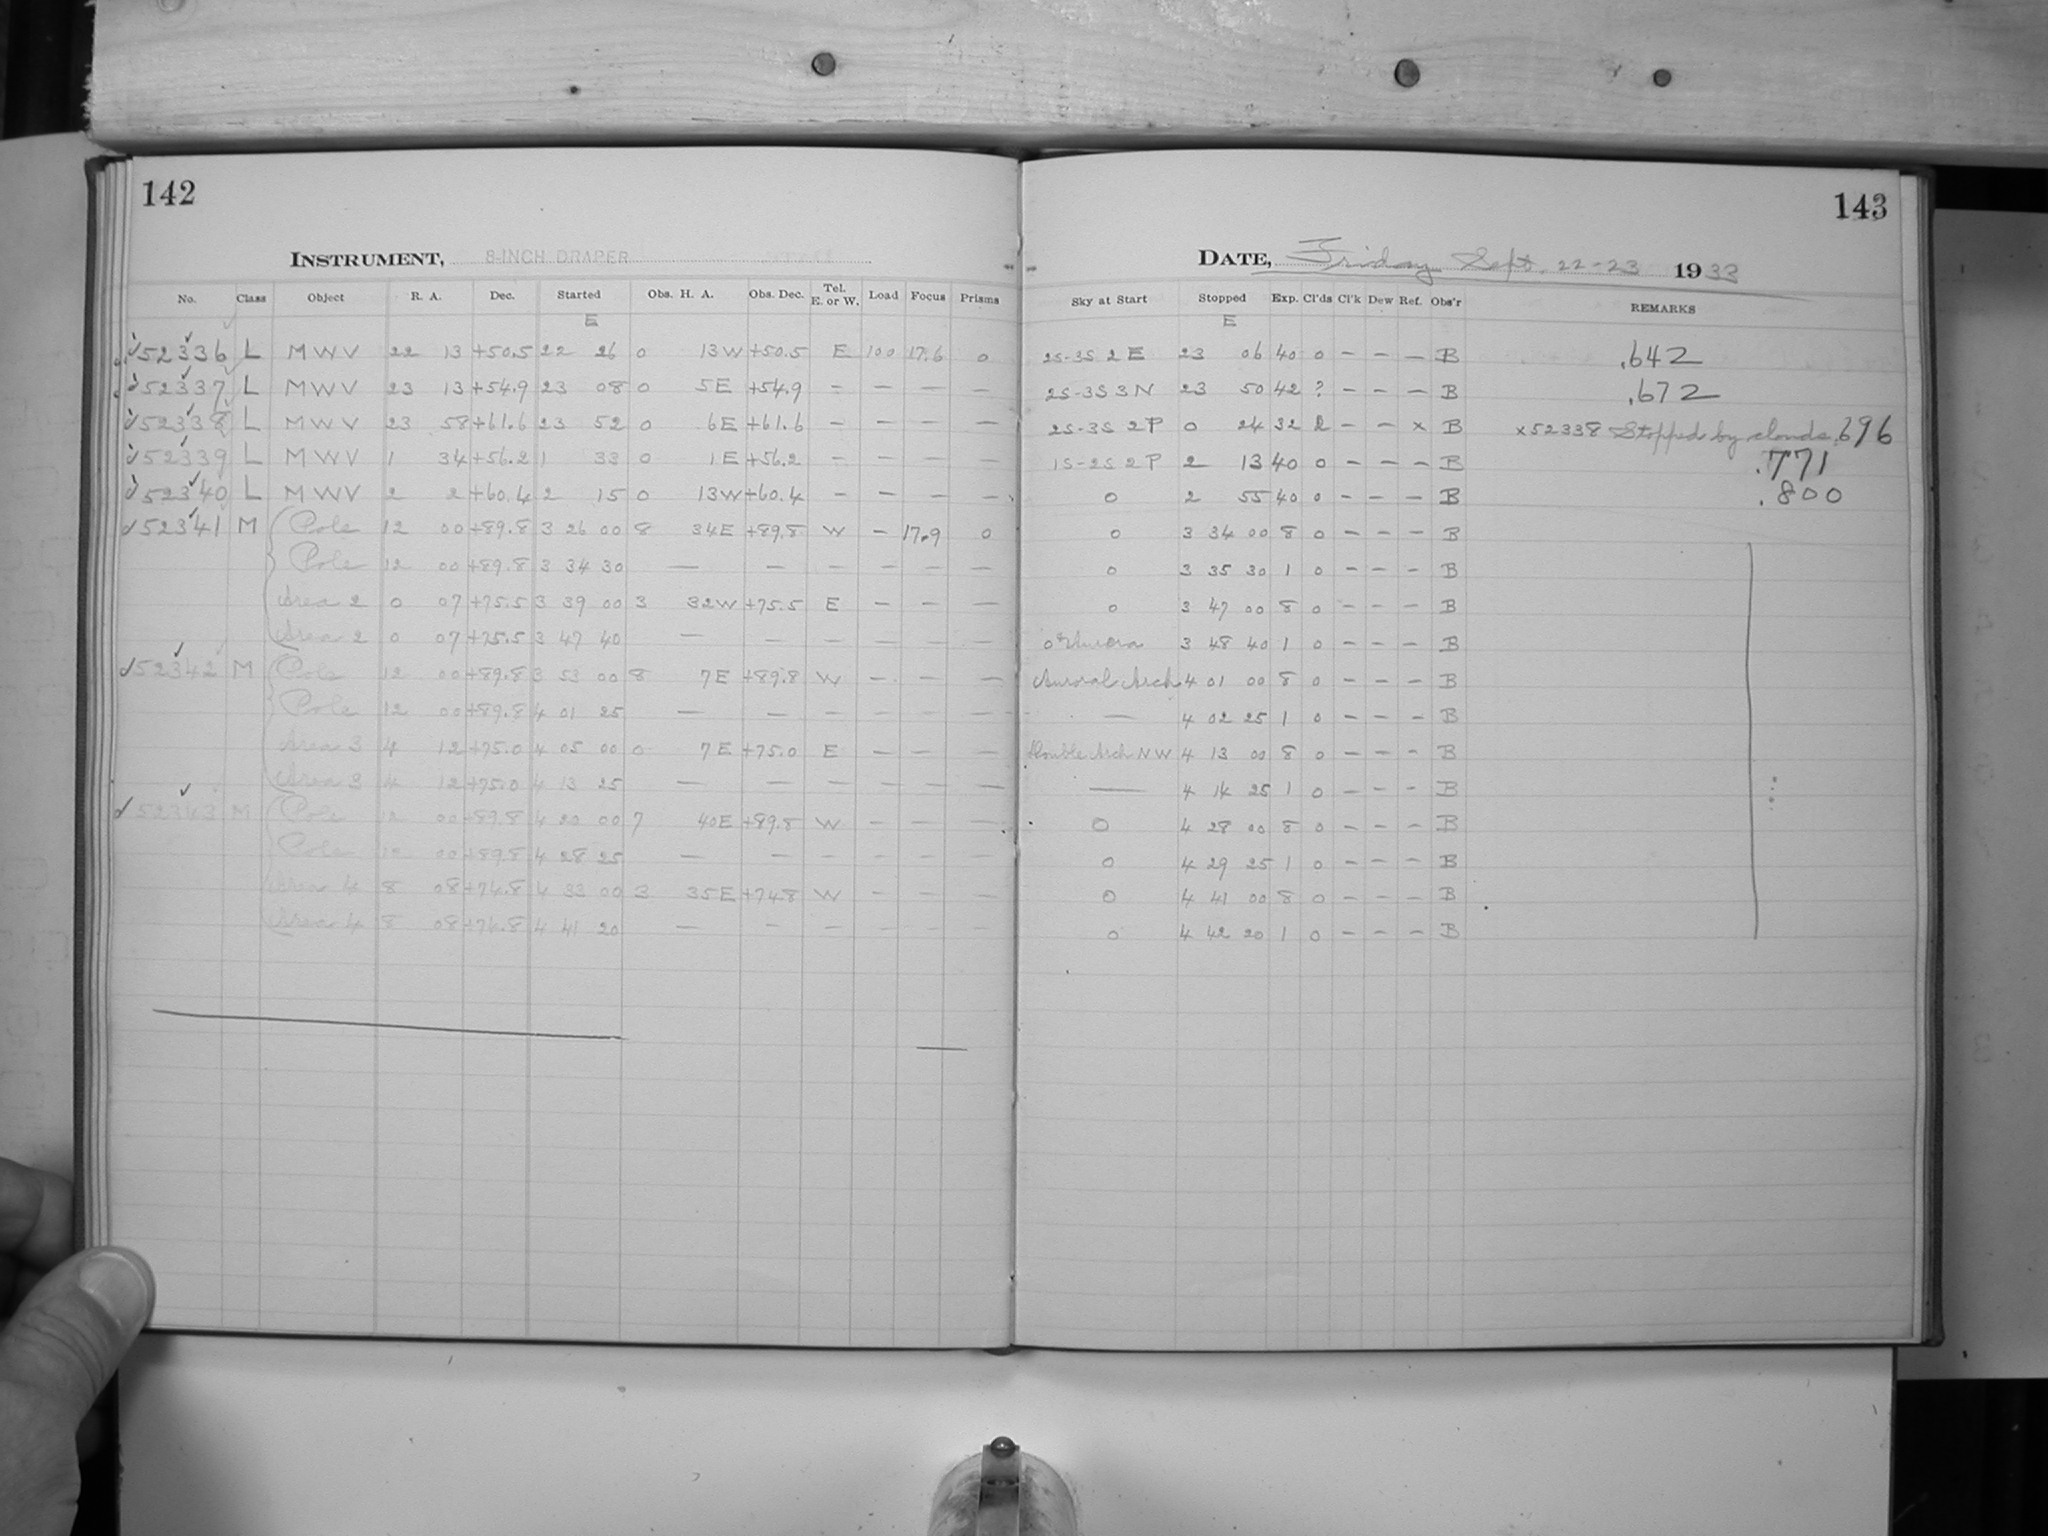 142
INSTRUMENT, 8-INCH DRAPER
No. Class Object R. A. Dec. Started Obs. H. A. Obs. Dec. Tel. E. or W. Load Focus Prisms
E
52336 L MWV 22 13 +50.5 22 26 0 13W +50.5 E 100 17.6 0
52337 L MWV 23 13 +54.9 23 08 0 5E +54.9 – – – –
52338 L MWV 23 58 +61.6 23 52 0 6E +61.6 – – – –
52339 L MWV 1 34 +56.2 1 33 0 1E +56.2 – – – –
52340 L MWV 2 2 +60.4 2 15 0 13W +60.4 – – – –
52341 M Pole 12 00 +89.8 3 26 00 8 34E +89.8 W – 17.9 0
Pole 12 00 +89.8 3 34 30 — – – – – –
Area 2 0 07 +75.5 3 39 00 3 32W +75.5 E – – –
Area 2 0 07 +75.5 3 47 40 — – – – – –
52342 M Pole 12 00 +89.8 3 53 00 8 7E +89.8 W – – –
Pole 12 00 +89.8 4 01 25 — – – – – –
Area 3 4 12 +75.0 4 05 00 0 7E +75.0 E – – –
Area 3 4 12 +75.0 4 13 25 — – – – – –
52343 M Pole 12 00 +89.8 4 20 00 7 40E +89.8 W – – –
Pole 12 00 +89.8 4 28 25 — – – – – –
Area 4 8 08 +74.8 4 33 00 3 35E +74.8 W – – –
Area 4 8 08 +74.8 4 41 20 — – – – – –
143
DATE, Friday Sept. 22-23 1933
Sky at Start Stopped Exp. Cl'ds Cl'k Dew Ref. Obs'r REMARKS
E
2S-3S 2E 23 06 40 0 – – – B .642
2S-3S 3N 23 50 42 ? – – – B .672
2S-3S 2P 0 24 32 – – x B x52338 Stopped by clouds .696
1S-2S 2P 2 13 40 0 – – – B .771
0 2 55 40 0 – – – B .800
0 3 34 00 8 0 – – – B
0 3 35 30 1 0 – – – B
0 3 47 00 8 0 – – – B
Aurora 3 48 40 1 0 – – – B
Auroral Arch 4 01 00 8 0 – – – B
— 4 02 25 1 0 – – – B
Double Arch NW 4 13 00 8 0 – – – B
— 4 14 25 1 0 – – – B
0 4 28 00 8 0 – – – B
0 4 29 25 1 0 – – – B
0 4 41 00 8 0 – – – B
0 4 42 20 1 0 – – – B